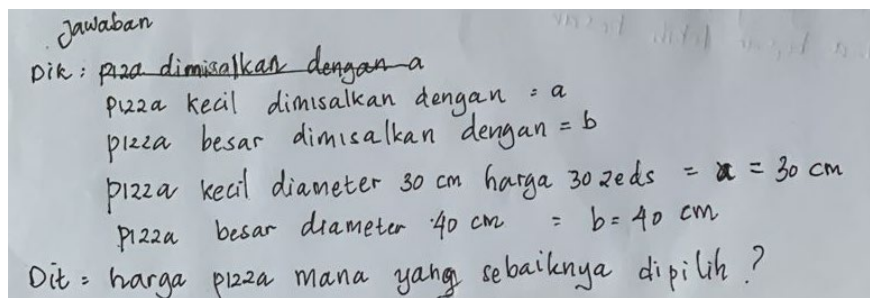 Jawaban
Dik : piza dimisalkan dengan a
pizza kecil dimisalkan dengan = a
pizza besar dimisalkan dengan = b
pizza kecil diameter 30 cm harga 30 zeds = a = 30 cm
pizza besar diameter 40 cm = b = 40 cm
Dit = harga pizza mana yang sebaiknya dipilih ?